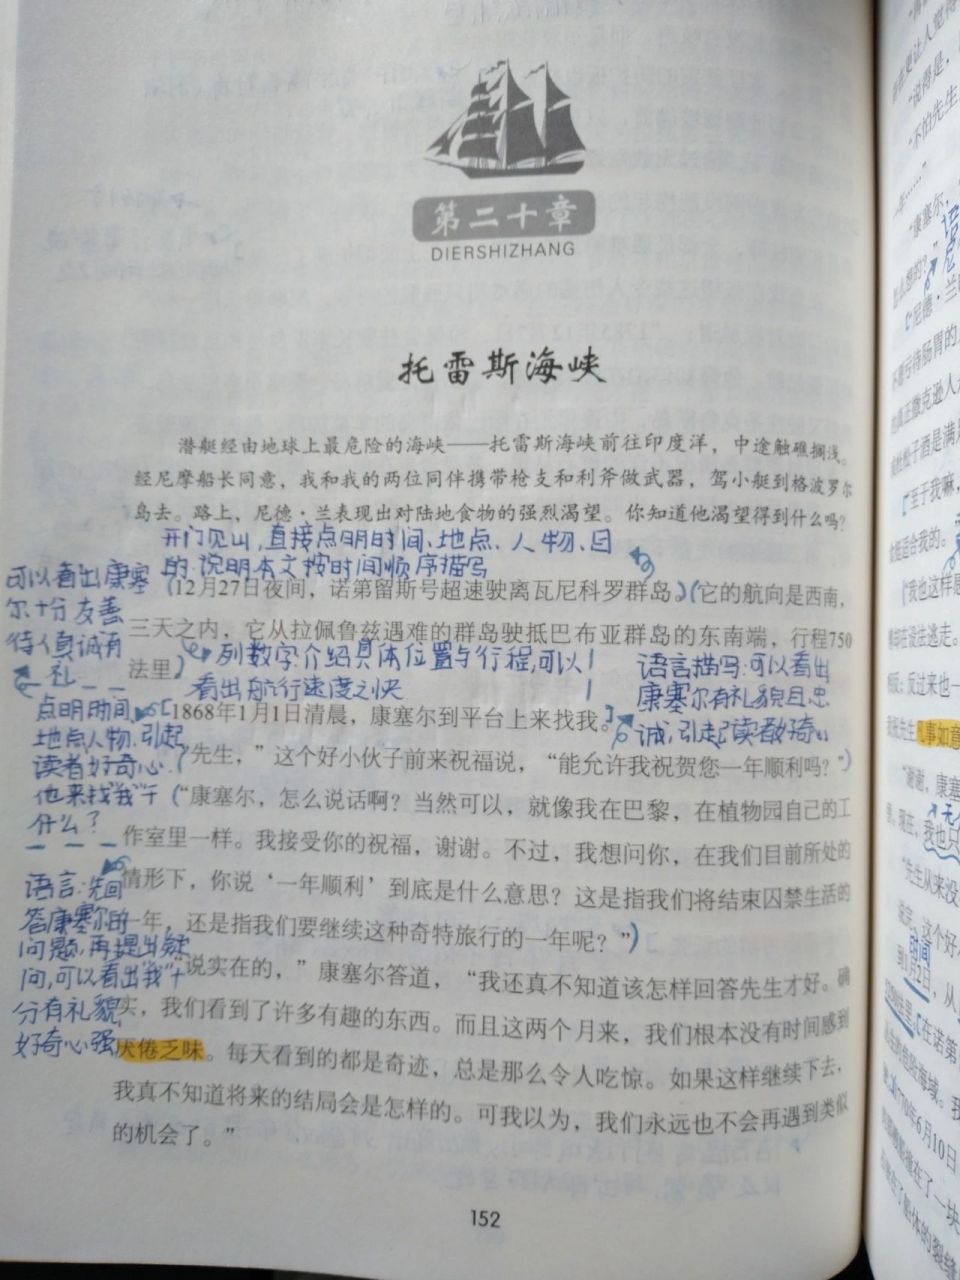 第二十章
DIERSHIZHANG
托雷斯海峡
潜艇经由地球上最危险的海峡——托雷斯海峡前往印度洋，中途触礁搁浅。
经尼摩船长同意，我和我的两位同伴携带枪支和利斧做武器，驾小艇到格波罗尔
岛去。路上，尼德·兰表现出对陆地食物的强烈渴望。你知道他渴望得到什么吗？
开门见山，直接点明时间、地点、人物、因
的，说明本文按时间顺序描写
12月27日夜间，诺第留斯号超速驶离瓦尼科罗群岛。它的航向是西南，
三天之内，它从拉佩鲁兹遇难的群岛驶抵巴布亚群岛的东南端，行程750
法里。
列数字介绍具体位置与行程，可以
看出航行速度之快
语言描写：可以看出
康塞尔有礼貌且忠
诚，引起读者好奇心
可以看出康塞
尔十分友善
待人真诚有
礼
1868年1月1日清晨，康塞尔到平台上来找我。
点明时间
地点人物，引起
读者好奇心.
他来找"我"干
什么？
“先生，”这个好小伙子前来祝福说，“能允许我祝贺您一年顺利吗？”
“康塞尔，怎么说话啊？当然可以，就像我在巴黎，在植物园自己的工
作室里一样。我接受你的祝福，谢谢。不过，我想问你，在我们目前所处的
情形下，你说‘一年顺利’到底是什么意思？这是指我们将结束囚禁生活的
一年，还是指我们要继续这种奇特旅行的一年呢？”
语言：先回
答康塞尔的
问题，再提出疑
问，可以看出"我"十
分有礼貌
好奇心强
“说实在的，”康塞尔答道，“我还真不知道该怎样回答先生才好。确
实，我们看到了许多有趣的东西。而且这两个月来，我们根本没有时间感到
厌倦乏味。每天看到的都是奇迹，总是那么令人吃惊。如果这样继续下去，
我真不知道将来的结局会是怎样的。可我以为，我们永远也不会再遇到类似
的机会了。”
152
“说得是，
“不怕先生
“康塞尔，
么想的？”
“尼德·兰
“至于我嘛，
“我也这样
事如意
“谢谢，康塞
里。现在，我也只
“先生从来没
说完，这个好小
时间
到1月2日，从
在诺第
1770年6月10日